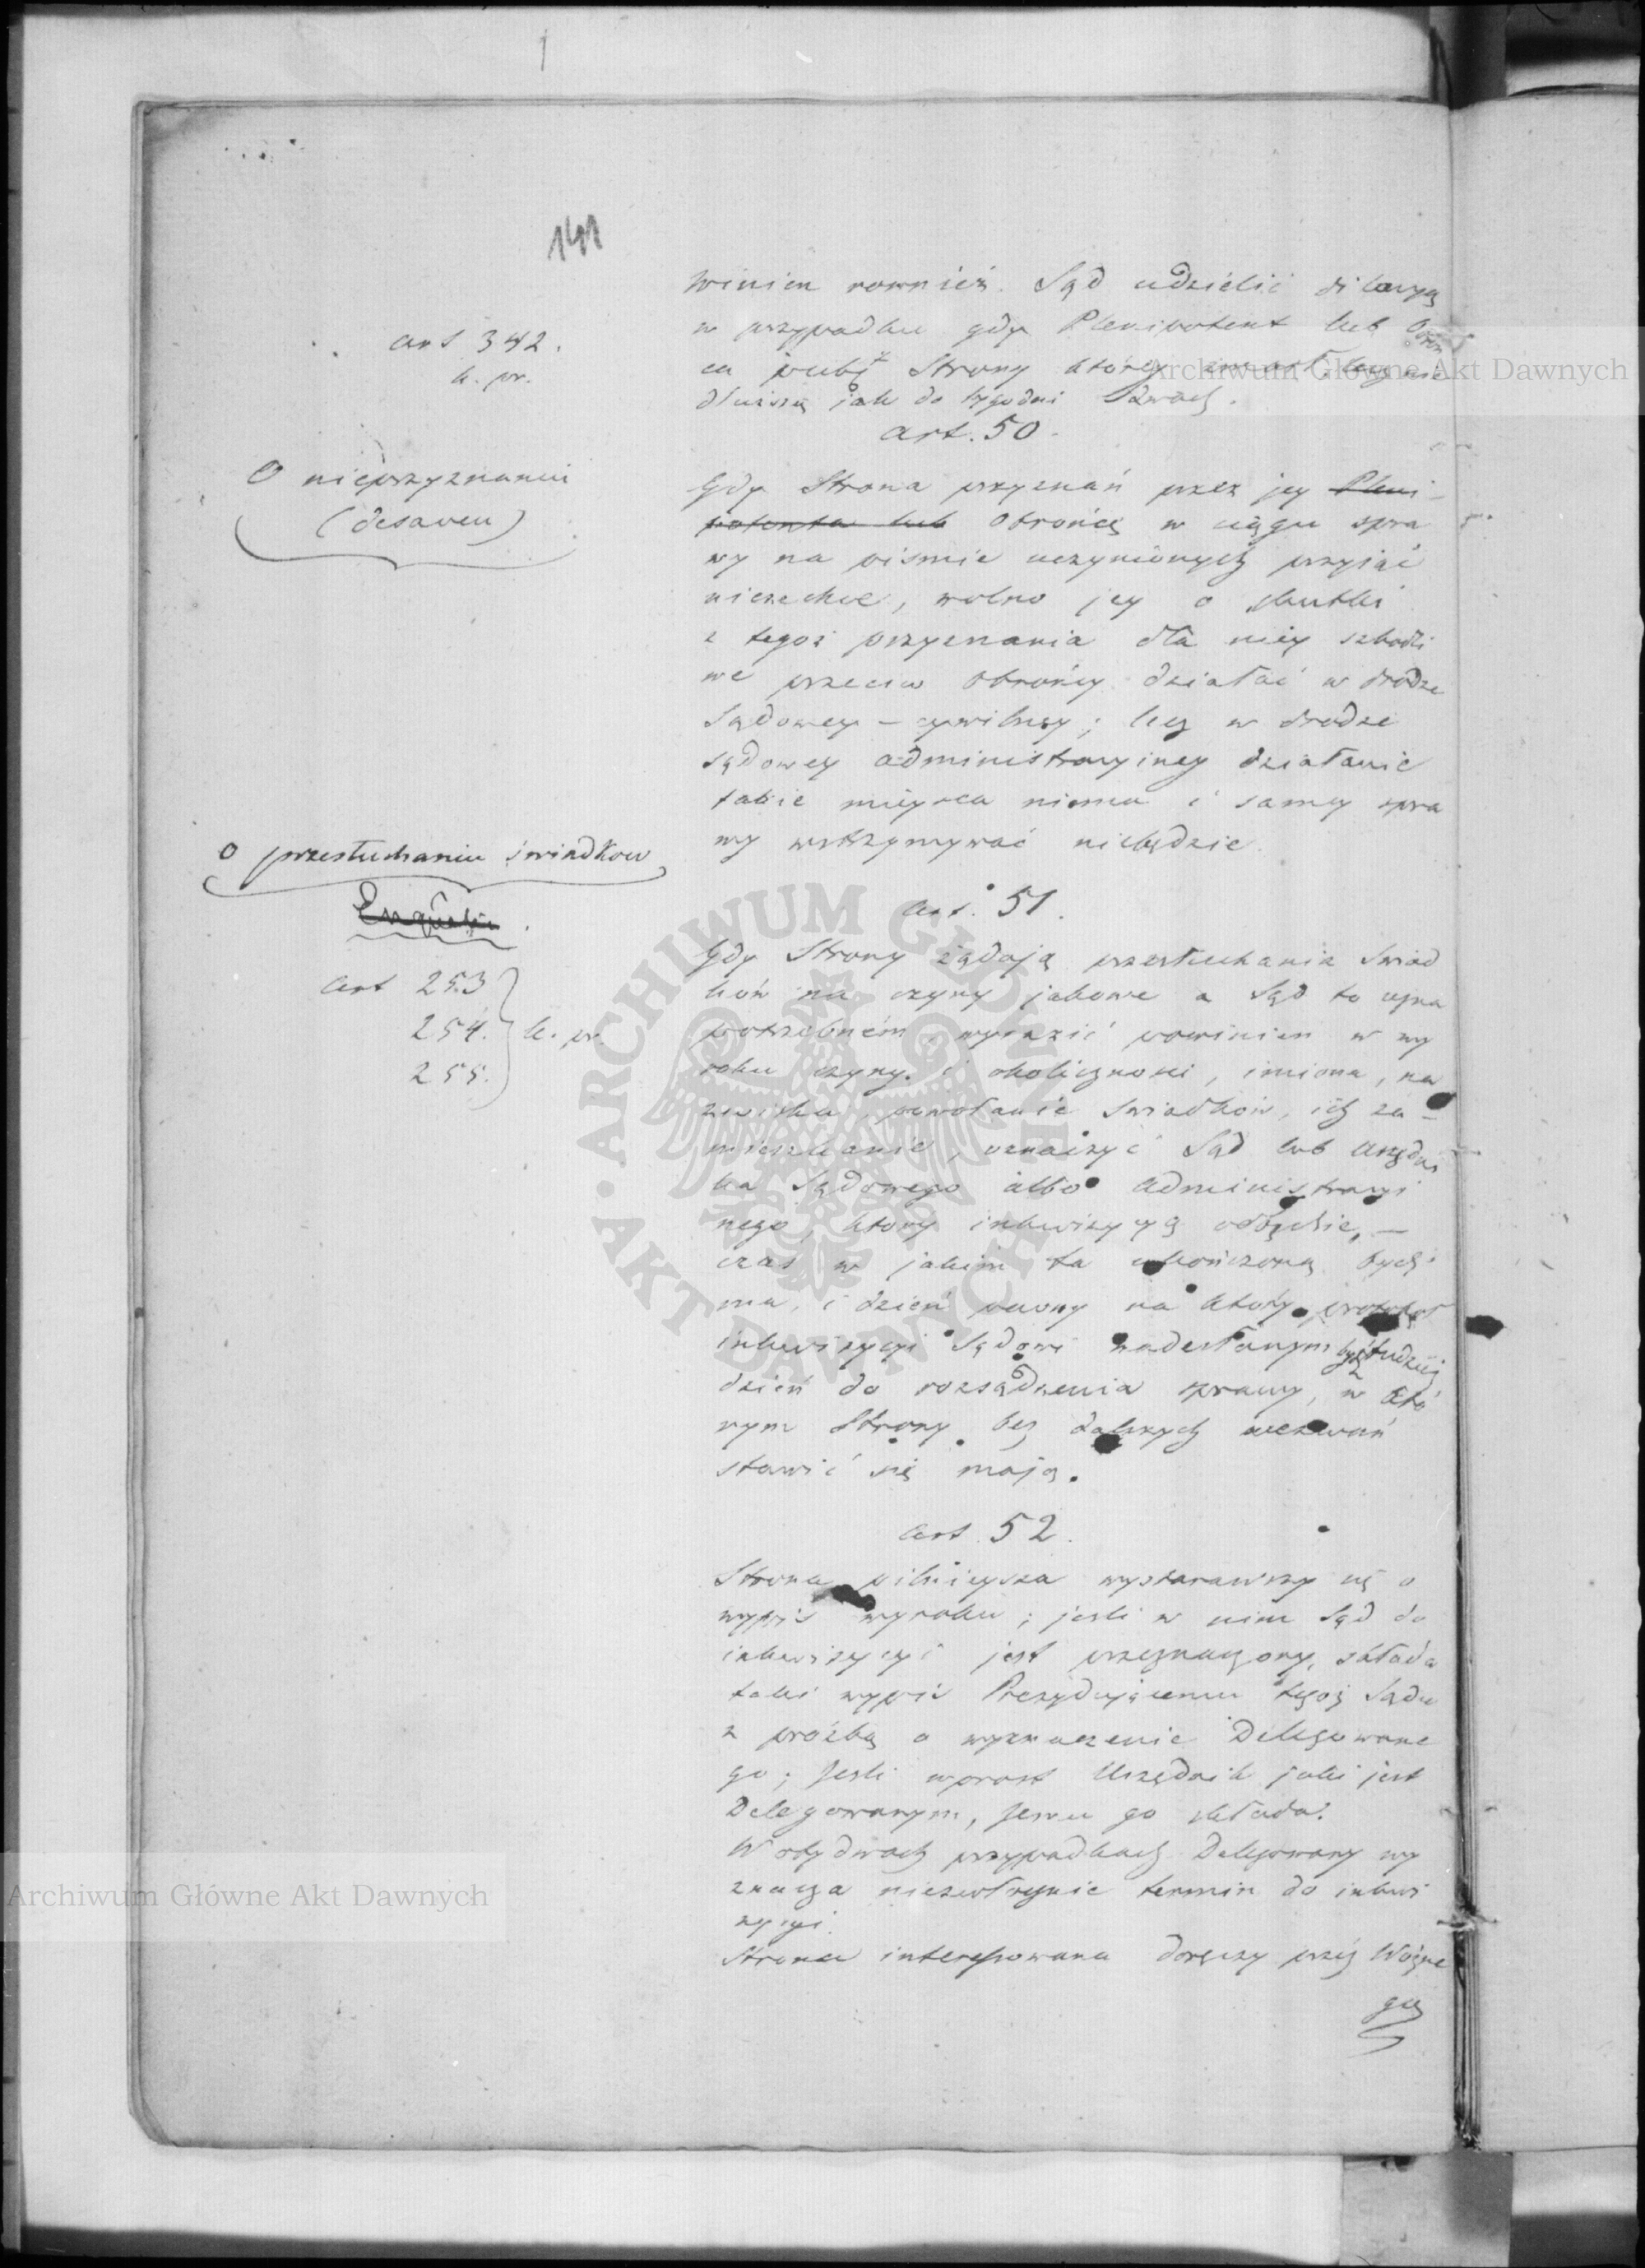 141
art 342.
k. pr.
winien rownież Sąd udzielić dilacyą
w przypadku gdy Plenipotent lub Obroń
ca Strony który
dłuższą jak do tygodni dwóch.
art. 50.
O nieprzyznaniu
(desaveu)
Gdy Strona przyznań przez jey Pleni-
potenta lub Obrońcę w ciągu spra
wy na pismie uczynionych przyjąć
niezechce, wolno jey o skutki
z tegoż przyznania dla niey szkodli
we przeciw Obrońcy działać w drodze
Sądowey - cywilney; lecz w drodze
sądowey administracyiney działanie
takie mieysca niema i samey spra
wy wstrzymywać niebędzie.
O przesłuchaniu świadkow
Enquête.
art 253
254. k. pr.
255.
art. 51.
Gdy Strony żądają przesłuchania Swiad
ków na czyny jakowe a Sąd to uzna
potrzebném, wyrazić powinien w wy
roku czyny i okoliczności, imiona, na
zwiska, powołanie swiadków, ich za-
mieszkanie, oznaczyć Sąd lub Urzędni
ka Sądowego albo Administracyi
nego, ktory inkwizycyą odbędzie, -
czas w jakim ta ukończoną bydź
ma, i dzień pewny na który protokół
inkwizycyi Sądowi nadesłanym bydź tudzież
dzień do rozsądzenia sprawy, w któ
rym Strony bez dalszych wezwań
stawić się mają.
art 52.
Strona pilnieysza wystarawszy się o
wypis wyroku; jesli w nim Sąd do
inkwizycyi jest przeznaczony, składa
taki wypis Prezydującemu tegoż Sądu
z prośbą o wyznaczenie Delegowane
go; Jesli wprost Urzędnik jaki jest
Delegowanym, Jemu go składa.
W obydwoch przypadkach Delegowany wy
znacza niezwłocznie termin do inkwi
zycyi.
Strona interessowana doręczy przez Woźne
go
Archiwum Główne Akt Dawnych
ARCHIWUM GŁÓWNE
AKT DAWNYCH
Archiwum Główne Akt Dawnych